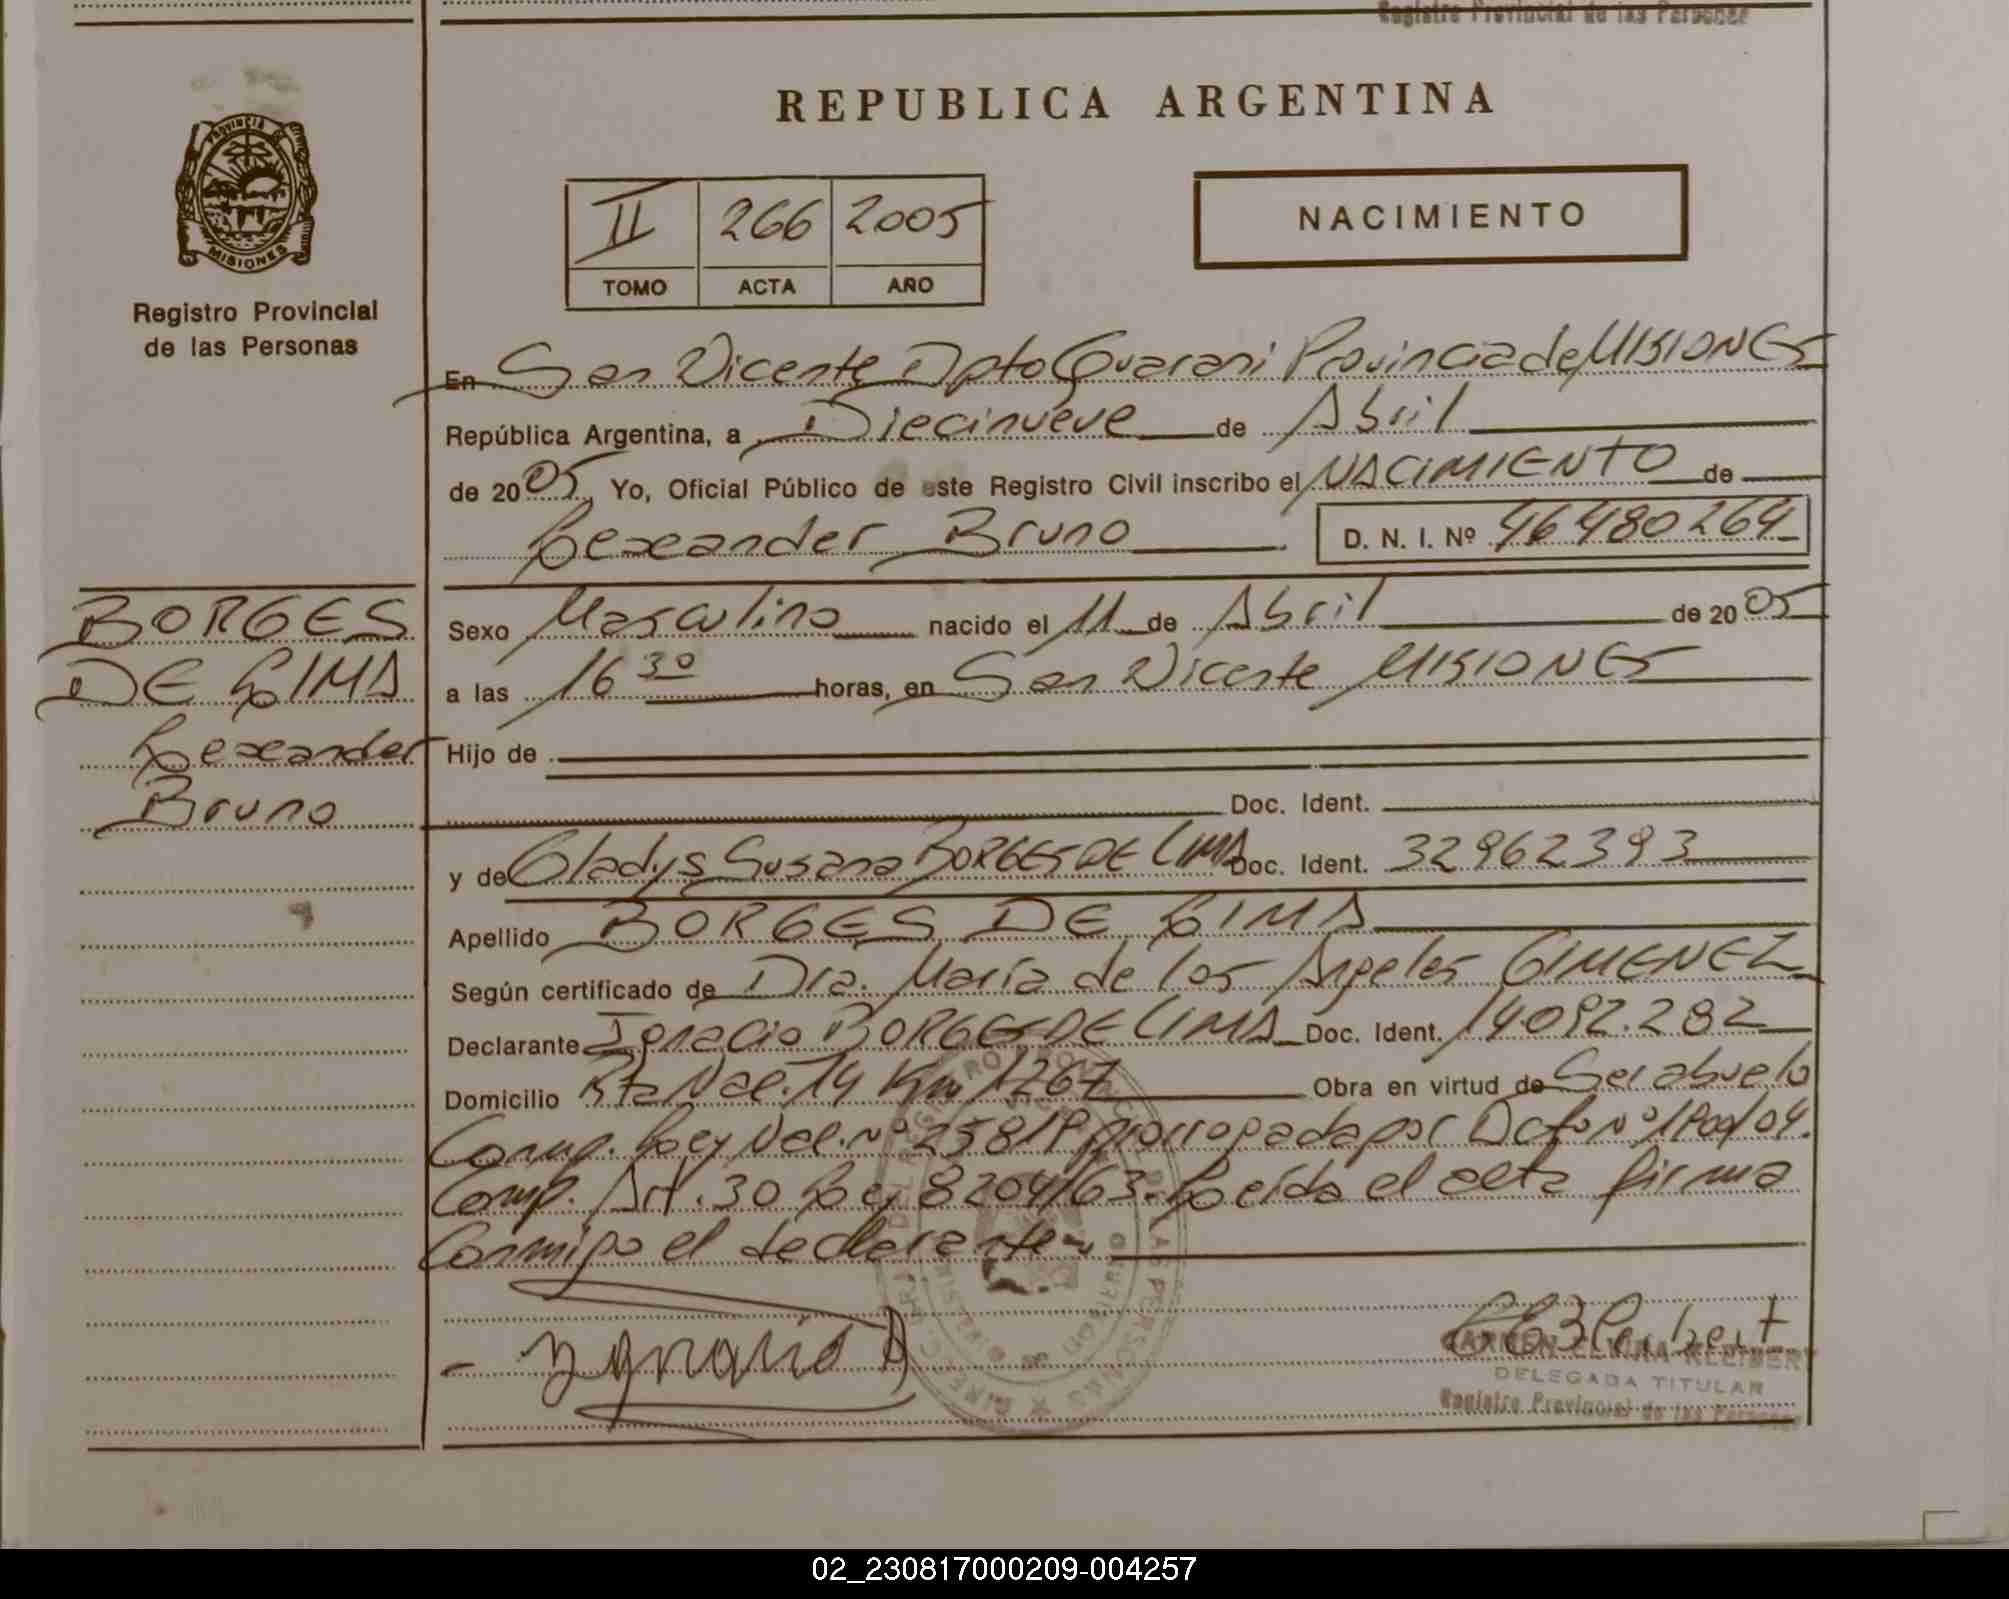 Registro Provincial de las Personas
REPUBLICA ARGENTINA
PROVINCIA DE
MISIONES
Registro Provincial
de las Personas
II 266 2005
TOMO ACTA AÑO
NACIMIENTO
En San Vicente Dpto Guarani Provincia de MISIONES
República Argentina, a Diecinueve de Abril
de 2005 Yo, Oficial Público de este Registro Civil inscribo el NACIMIENTO de
Lexeander Bruno D. N. I. Nº 46480264
BORGES
DE LIMA
Lexeander
Bruno
Sexo Masculino nacido el 11 de Abril de 2005
a las 16 30 horas, en San Vicente MISIONES
Hijo de
Doc. Ident.
y de Gladys Susana BORGES DE LIMA Doc. Ident. 32962393
Apellido BORGES DE LIMA
Según certificado de Dra. María de los Angeles GIMENEZ
Declarante Ignacio BORGES DE LIMA Doc. Ident. 14.092.282
Domicilio Rta Nac. 14 Km 1267 Obra en virtud de Ser abuelo
Comp. Ley Nac. nº 25819 prorrogada por Dcto Nº 1900/04.
Comp. Art. 30 Ley 8204/63. Leída el acta firma
Conmigo el declarante
Ygnacio
CARMEN ELVIRA KLEIBERT
DELEGADA TITULAR
Registro Provincial de las Personas
02_230817000209-004257